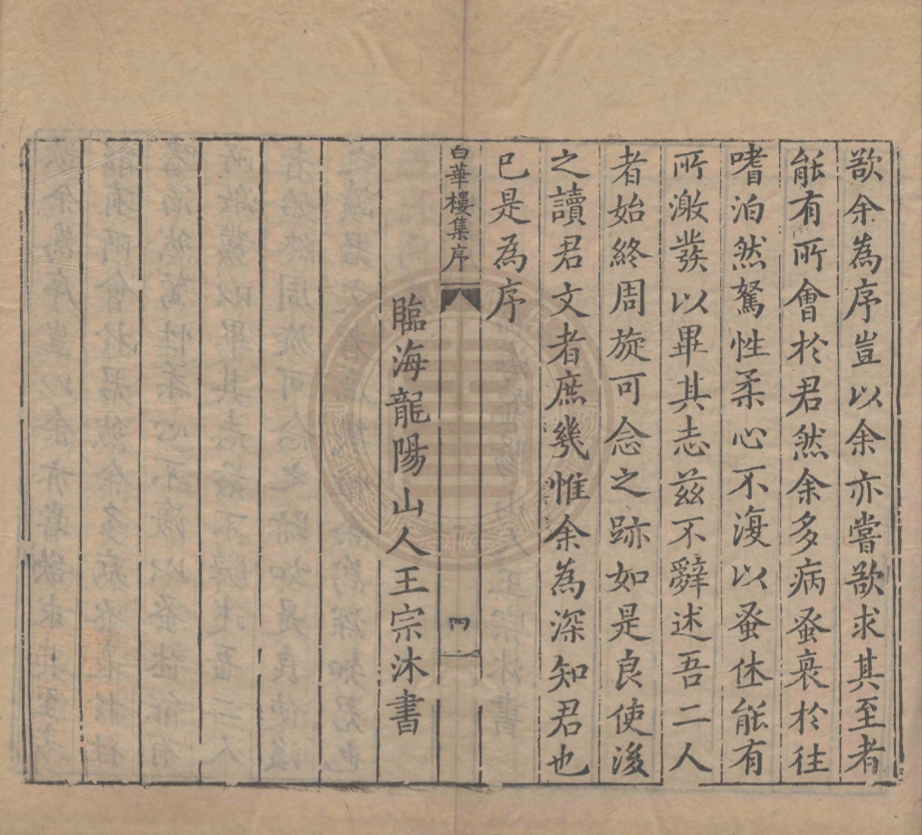 欲余為序豈以余亦嘗欲求其至者
能有所會於君然余多病蚤衰於徃
嗜泊然駑性柔心不復以蚤佳能有
所激發以畢其志兹不辭述吾二人
者始終周旋可念之跡如是良使後
之讀君文者庶㡬惟余為深知君也
已是為序
白華樓集序
四
臨海龍陽山人王宗沐書